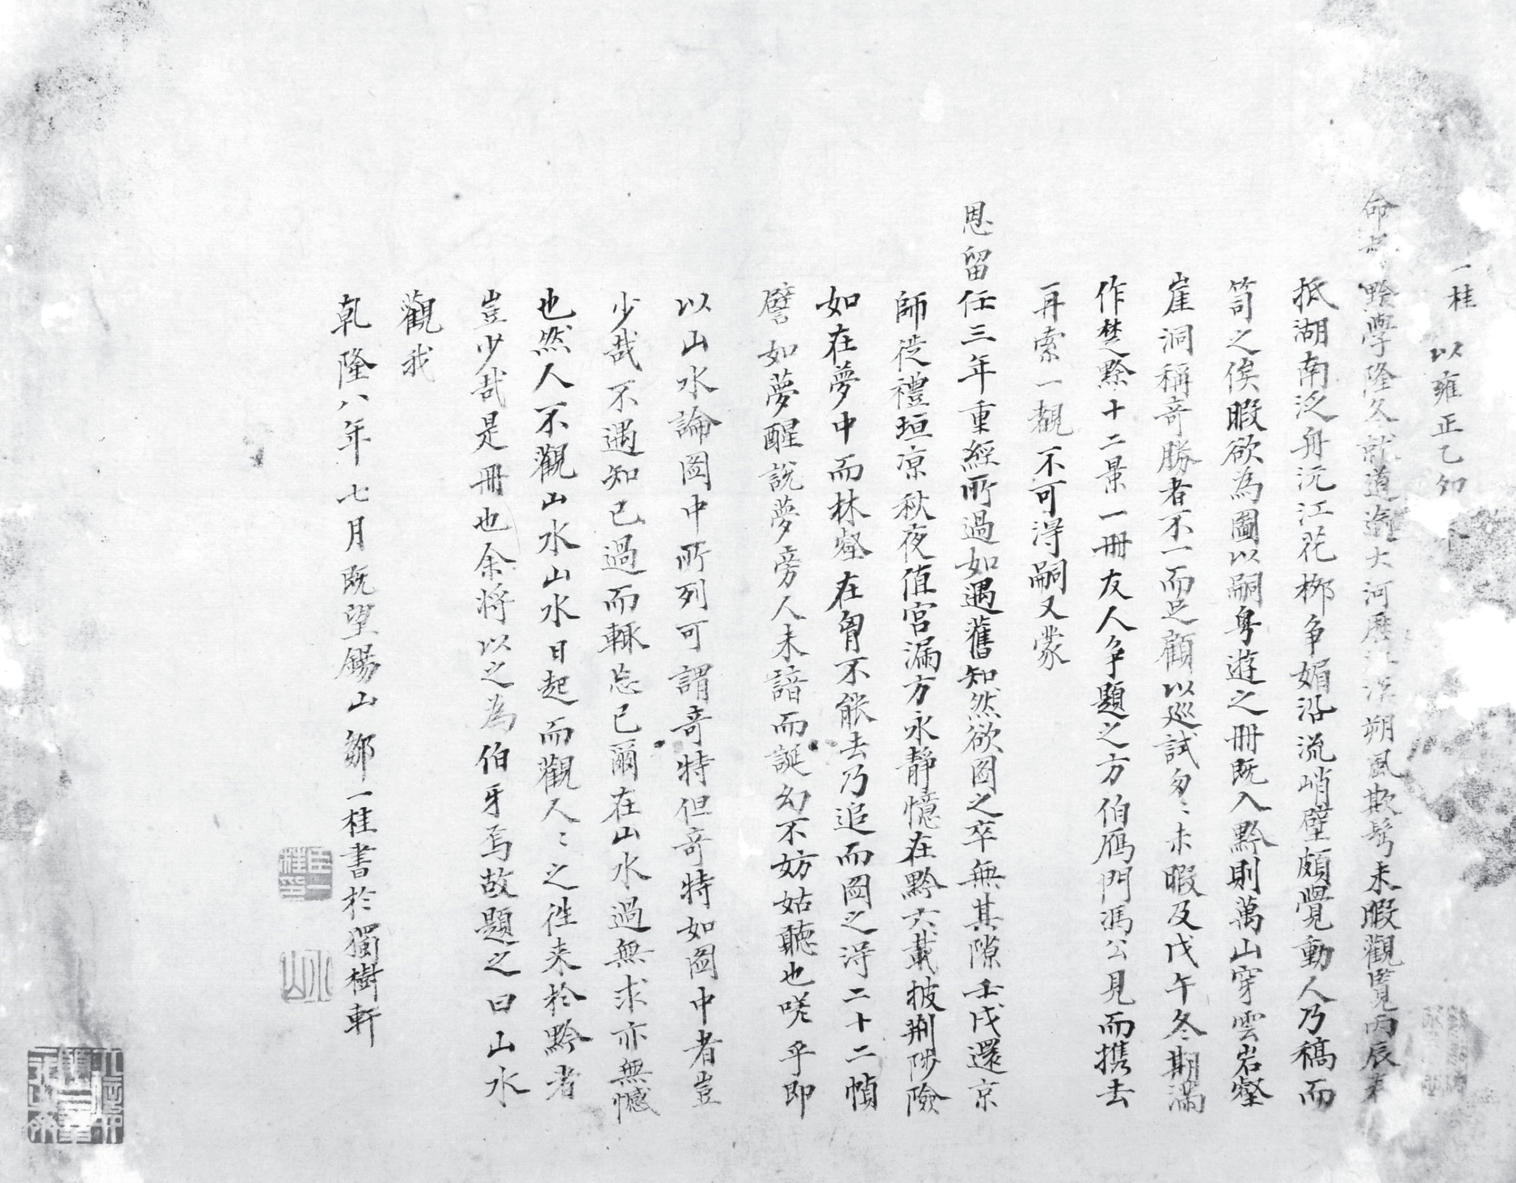 一桂以雍正乙卯
命督黔學隆冬就道逾大河歷江漢朔風欺鬢未暇觀覽丙辰春
抵湖南泛舟沅江花柳爭媚沿流峭壁頗覺動人乃稿而
笥之俟暇欲為圖以嗣粤遊之冊既入黔則萬山穿雲岩壑
崖洞稱奇勝者不一而足顧以巡試匆〻未暇及戊午冬期滿
作楚黔十二景一冊友人爭題之方伯鴈門馮公見而携去
再索一觀不可淂嗣又蒙
恩留任三年重經所過如遇舊知然欲圖之卒無其隙壬戌還京
師從禮垣凉秋夜值宮漏方永靜憶在黔六載披荆陟險
如在夢中而林壑在胷不能去乃追而圖之淂二十二幀
譬如夢醒說夢旁人未諳而誕幻不妨姑聽也嗟乎即
以山水論圖中所列可謂奇特但奇特如圖中者豈
少哉不遇知己過而輒忘已爾在山水過無求亦無憾
也然人不觀山水山水日起而觀人〻之往来於黔者
豈少哉是冊也余將以之為伯牙焉故題之曰山水
觀我
乹隆八年七月既望錫山鄒一桂書於獨樹軒
臣一桂印
小山